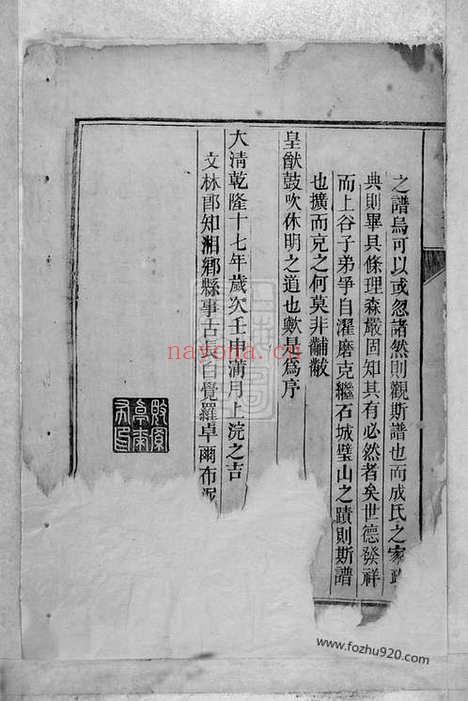 之譜烏可以或忽諸然則觀斯譜也而成氏之家政
典則畢具條理森嚴固知其有必然者矣世德發祥
而上谷子弟爭自濯磨克繼石城璧山之蹟則斯譜
也擴而充之何莫非黼黻
皇猷鼓吹休明之道也歟是為序
大清乾隆十七年歲次壬申蒲月上浣之吉
文林郎知湘鄉縣事古長白覺羅卓爾布泥
nayona.cn
www.fozhu920.com